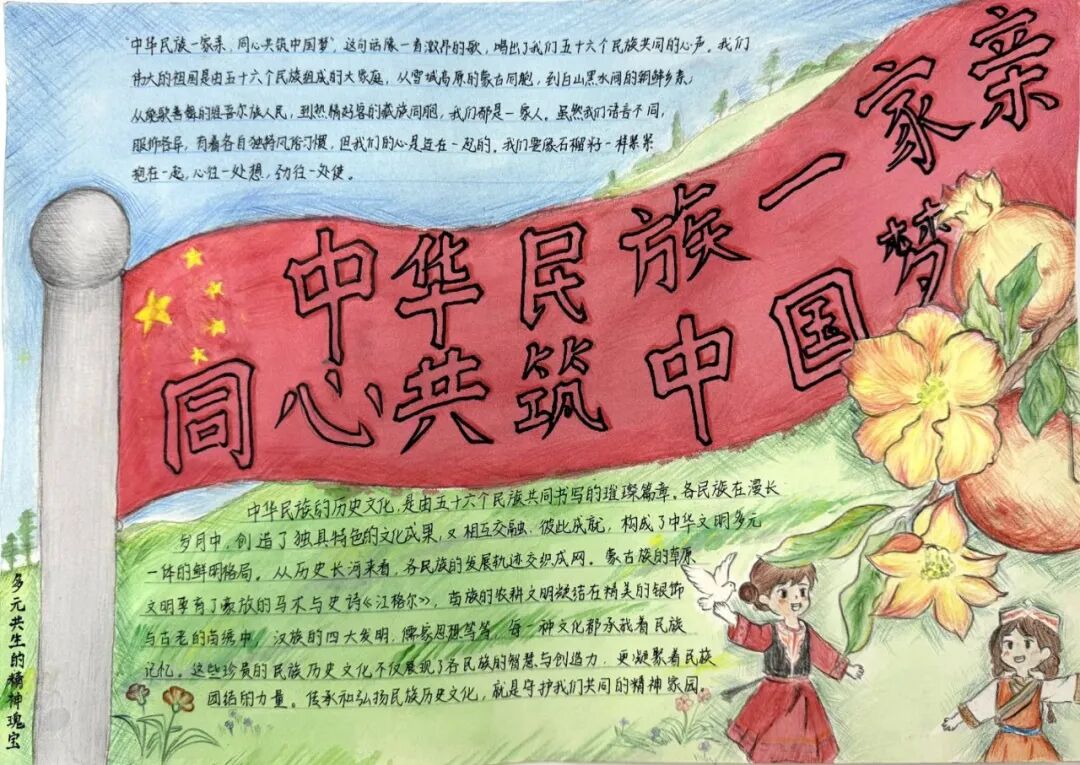 "中华民族一家亲，同心共筑中国梦"，这句话像一首激昂的歌，唱出了我们五十六个民族共同的心声。我们
伟大的祖国是由五十六个民族组成的大家庭，从雪域高原的蒙古同胞，到白山黑水间的朝鲜乡亲；
从能歌善舞的维吾尔族人民，到热情好客的藏族同胞，我们都是一家人。虽然我们语言不同，
服饰各异，有着各自独特风俗习惯，但我们的心是连在一起的。我们要像石榴籽一样紧紧
抱在一起，心往一处想，劲往一处使。
中华民族一家亲
同心共筑中国梦
中华民族的历史文化，是由五十六个民族共同书写的璀璨篇章。各民族在漫长
岁月中，创造了独具特色的文化成果，又相互交融、彼此成就，构成了中华文明多元
一体的鲜明格局。从历史长河来看，各民族的发展轨迹交织成网。蒙古族的草原
文明孕育了豪放的马术与史诗《江格尔》，苗族的农耕文明凝结在精美的银饰
与古老的苗绣中，汉族的四大发明，儒家思想等等，每一种文化都承载着民族
记忆。这些珍贵的民族历史文化不仅展现了各民族的智慧与创造力，更凝聚着民族
团结的力量。传承和弘扬民族历史文化，就是守护我们共同的精神家园。
多元共生的精神瑰宝